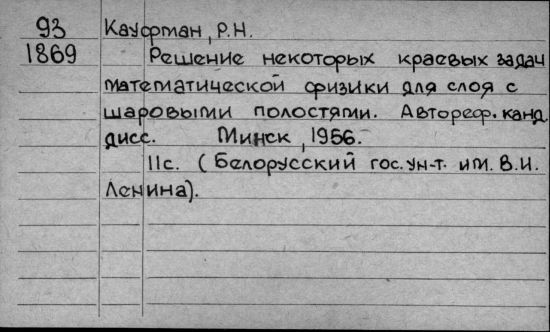 93 Кауфман, Р.Н.
1869 Решение некоторых краевых задач
математической физики для слоя с
шаровыми полостями. Автореф. канд.
дисс. Минск, 1956.
11с. (Белорусский гос. ун-т. им. В.И.
Ленина).